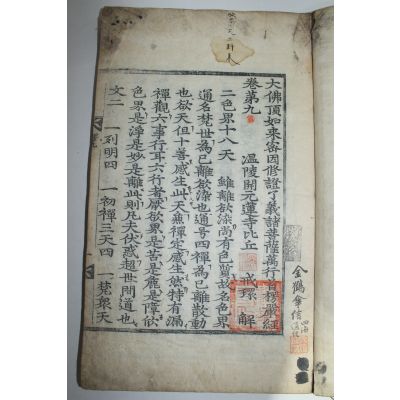 大佛頂如來密因修證了義諸菩薩萬行首楞嚴經
卷第九 溫陵開元蓮寺比丘 戒環 解
二色界十八天 雖離欲染尚有色質故名色界
通名梵世爲已離欲染也通號四禪爲已離散動
也欲天但十善感生此天兼禪定感生然特有漏
禪觀六事行耳六行者厭欲界是苦是麤是障欣
色界是淨是妙是離此則凡夫伏惑超世間道也
文二 一列明四 一初禪三天四 一梵衆天
金鶴會信